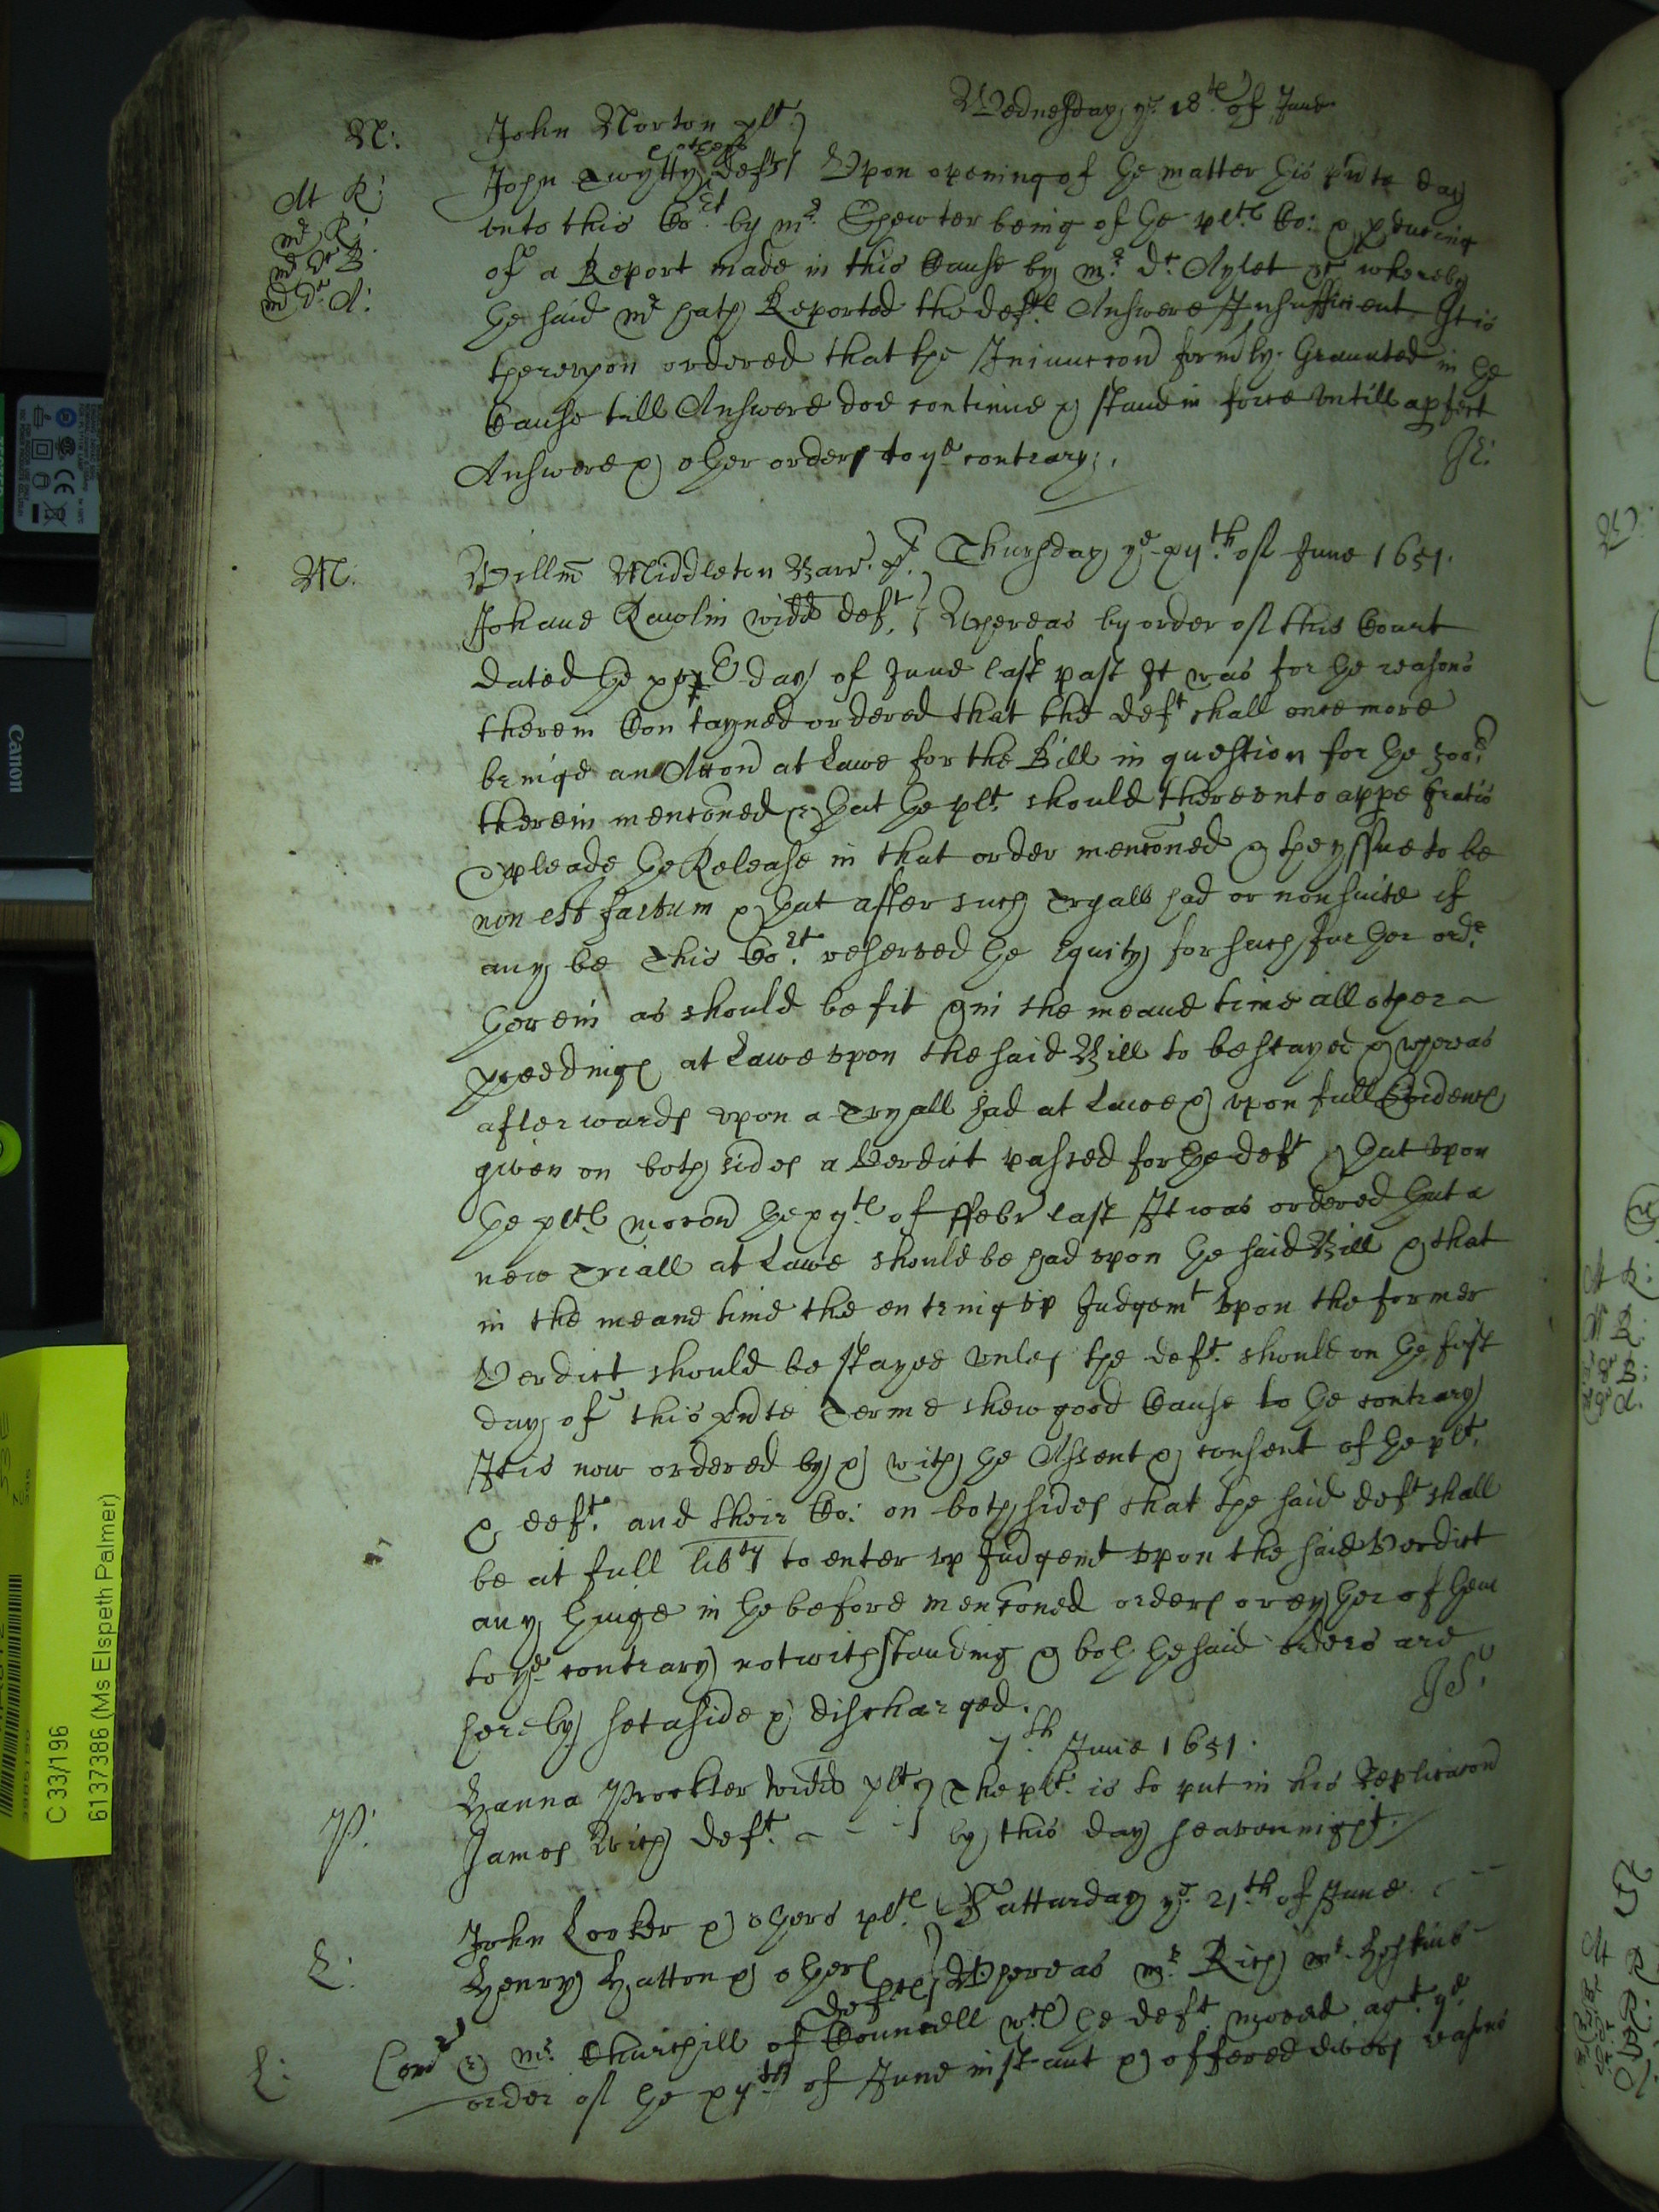 Wednesday ye. 18th of June
N: John Norton plt.
John Twytty & others defts Upon opening of the matter this pnte day
At R:
unto this Cort. by mr. Chewter being of the plts. Co: & pducing
mr R:
of a Report made in this Cause by mr. dr. Aylet whereby
mr dr B
mr Dr. A:
the said mr hath Reported the defts Answere Insufficient It is
thereupon ordered that the Iniunccon formly. Graunted in the
Cause till Answere doe continue & stand in force untill a pfect
Answere & other order to ye contrary.
M: Willm Middleton Barrt. plt. Thursday ye xijth of June 1651.
Johane Rawlin widd deft. Whereas by order of this Court
dated the day of June last past It was for the reasons
therein Contayned ordered that the deft shall once more
bringe an Accon at Lawe for the Bill in question for the
therein menconed & that the plt. should thereunto appe gratis
& pleade the Release in that order menconed & the yssue to be
non est factum & that after such Tryall had or nonsuite if
any be This Cort. reserved the Equity for such further ordr.
therein as should be fit & in the meane time all other
pceedings at Lawe upon the said Bill to be stayed & whereas
afterwards upon a Tryall had at Lawe & upon full Evidence
given on both sides a Verdict passed for the deft & that upon
the plts mocon the of ffebr last It was ordered that a
new Triall at Lawe should be had upon the said Bill & that
in the meane time the entring up Judgemt upon the former
Verdict should be stayed unles the deft. should on the first
day of this pnte Terme shew good Cause to the contrary
It is now ordered by & with the Assent & consent of the plt.
& deft. and their Co: on both sides that the said deft shall
be at full libty to enter up Judgemt upon the said Verdict
any thinge in the before menconed orders or eyther of them
to ye contrary notwithstanding & both the said orders are
hereby set aside & discharged.
7th June 1651.
P: Hanna Prockter widd plt The plt. is to put in his Replicacon
James Rich deft. by this day seavennight.
L: John Looker & others plts. Satturday ye. 21th of June
Henry Hatton & others defts Whereas mr. Rich mr. Hoskins
L: & mr. Churchill of Councell wth the deft moved agt. ye
order of the xijth of June instant & offered divers reasons
Canon
C 33/196
6137386 (Ms Elspeth Palmer)